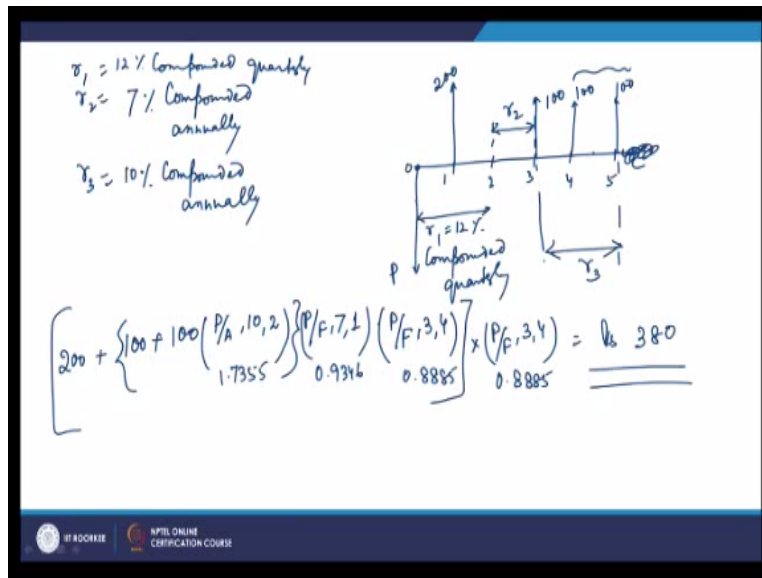 r₁ = 12% Compounded quartely
r₂ = 7% Compounded
annually
r₃ = 10% Compounded
annually
200
r₂
100
100
100
0
1
2
3
4
5
r₁ = 12%.
Compounded
quartely
P
r₃
[200 + {100 + 100 (P/A, 10, 2)} (P/F, 7, 1) (P/F, 3, 4)] × (P/F, 3, 4) = Rs 380
1.7355 0.9346 0.8885 0.8885
IIT ROORKEE
NPTEL ONLINE
CERTIFICATION COURSE